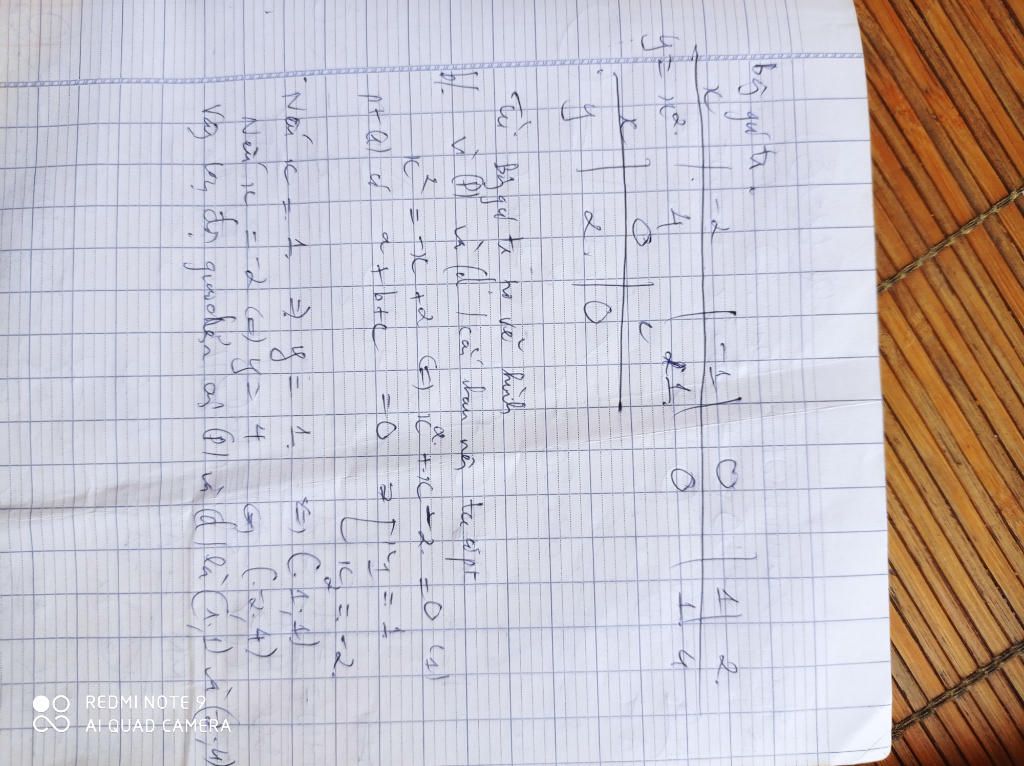 Bảng giá trị.
x | -2 | -1 | 0 | 1 | 2.
y = x². 4 1 0 1 4
x | 0 |
y | 2. | 0
Từ bảng gt ta vẽ hình
b). Vì (P) và (d) cắt nhau nên ta có pt
x² = -x + 2 (=) x² + x - 2 = 0 (1)
pt (1) có a + b + c = 0 => [ x₁ = 1
x₂ = -2.
Nếu x = 1. => y = 1. (=) (1; 1)
Nếu x = -2 (=) y = 4 (=) (-2; 4)
Vậy tọa độ giao điểm của (P) và (d) là (1; 1) và
REDMI NOTE 9
AI QUAD CAMERA